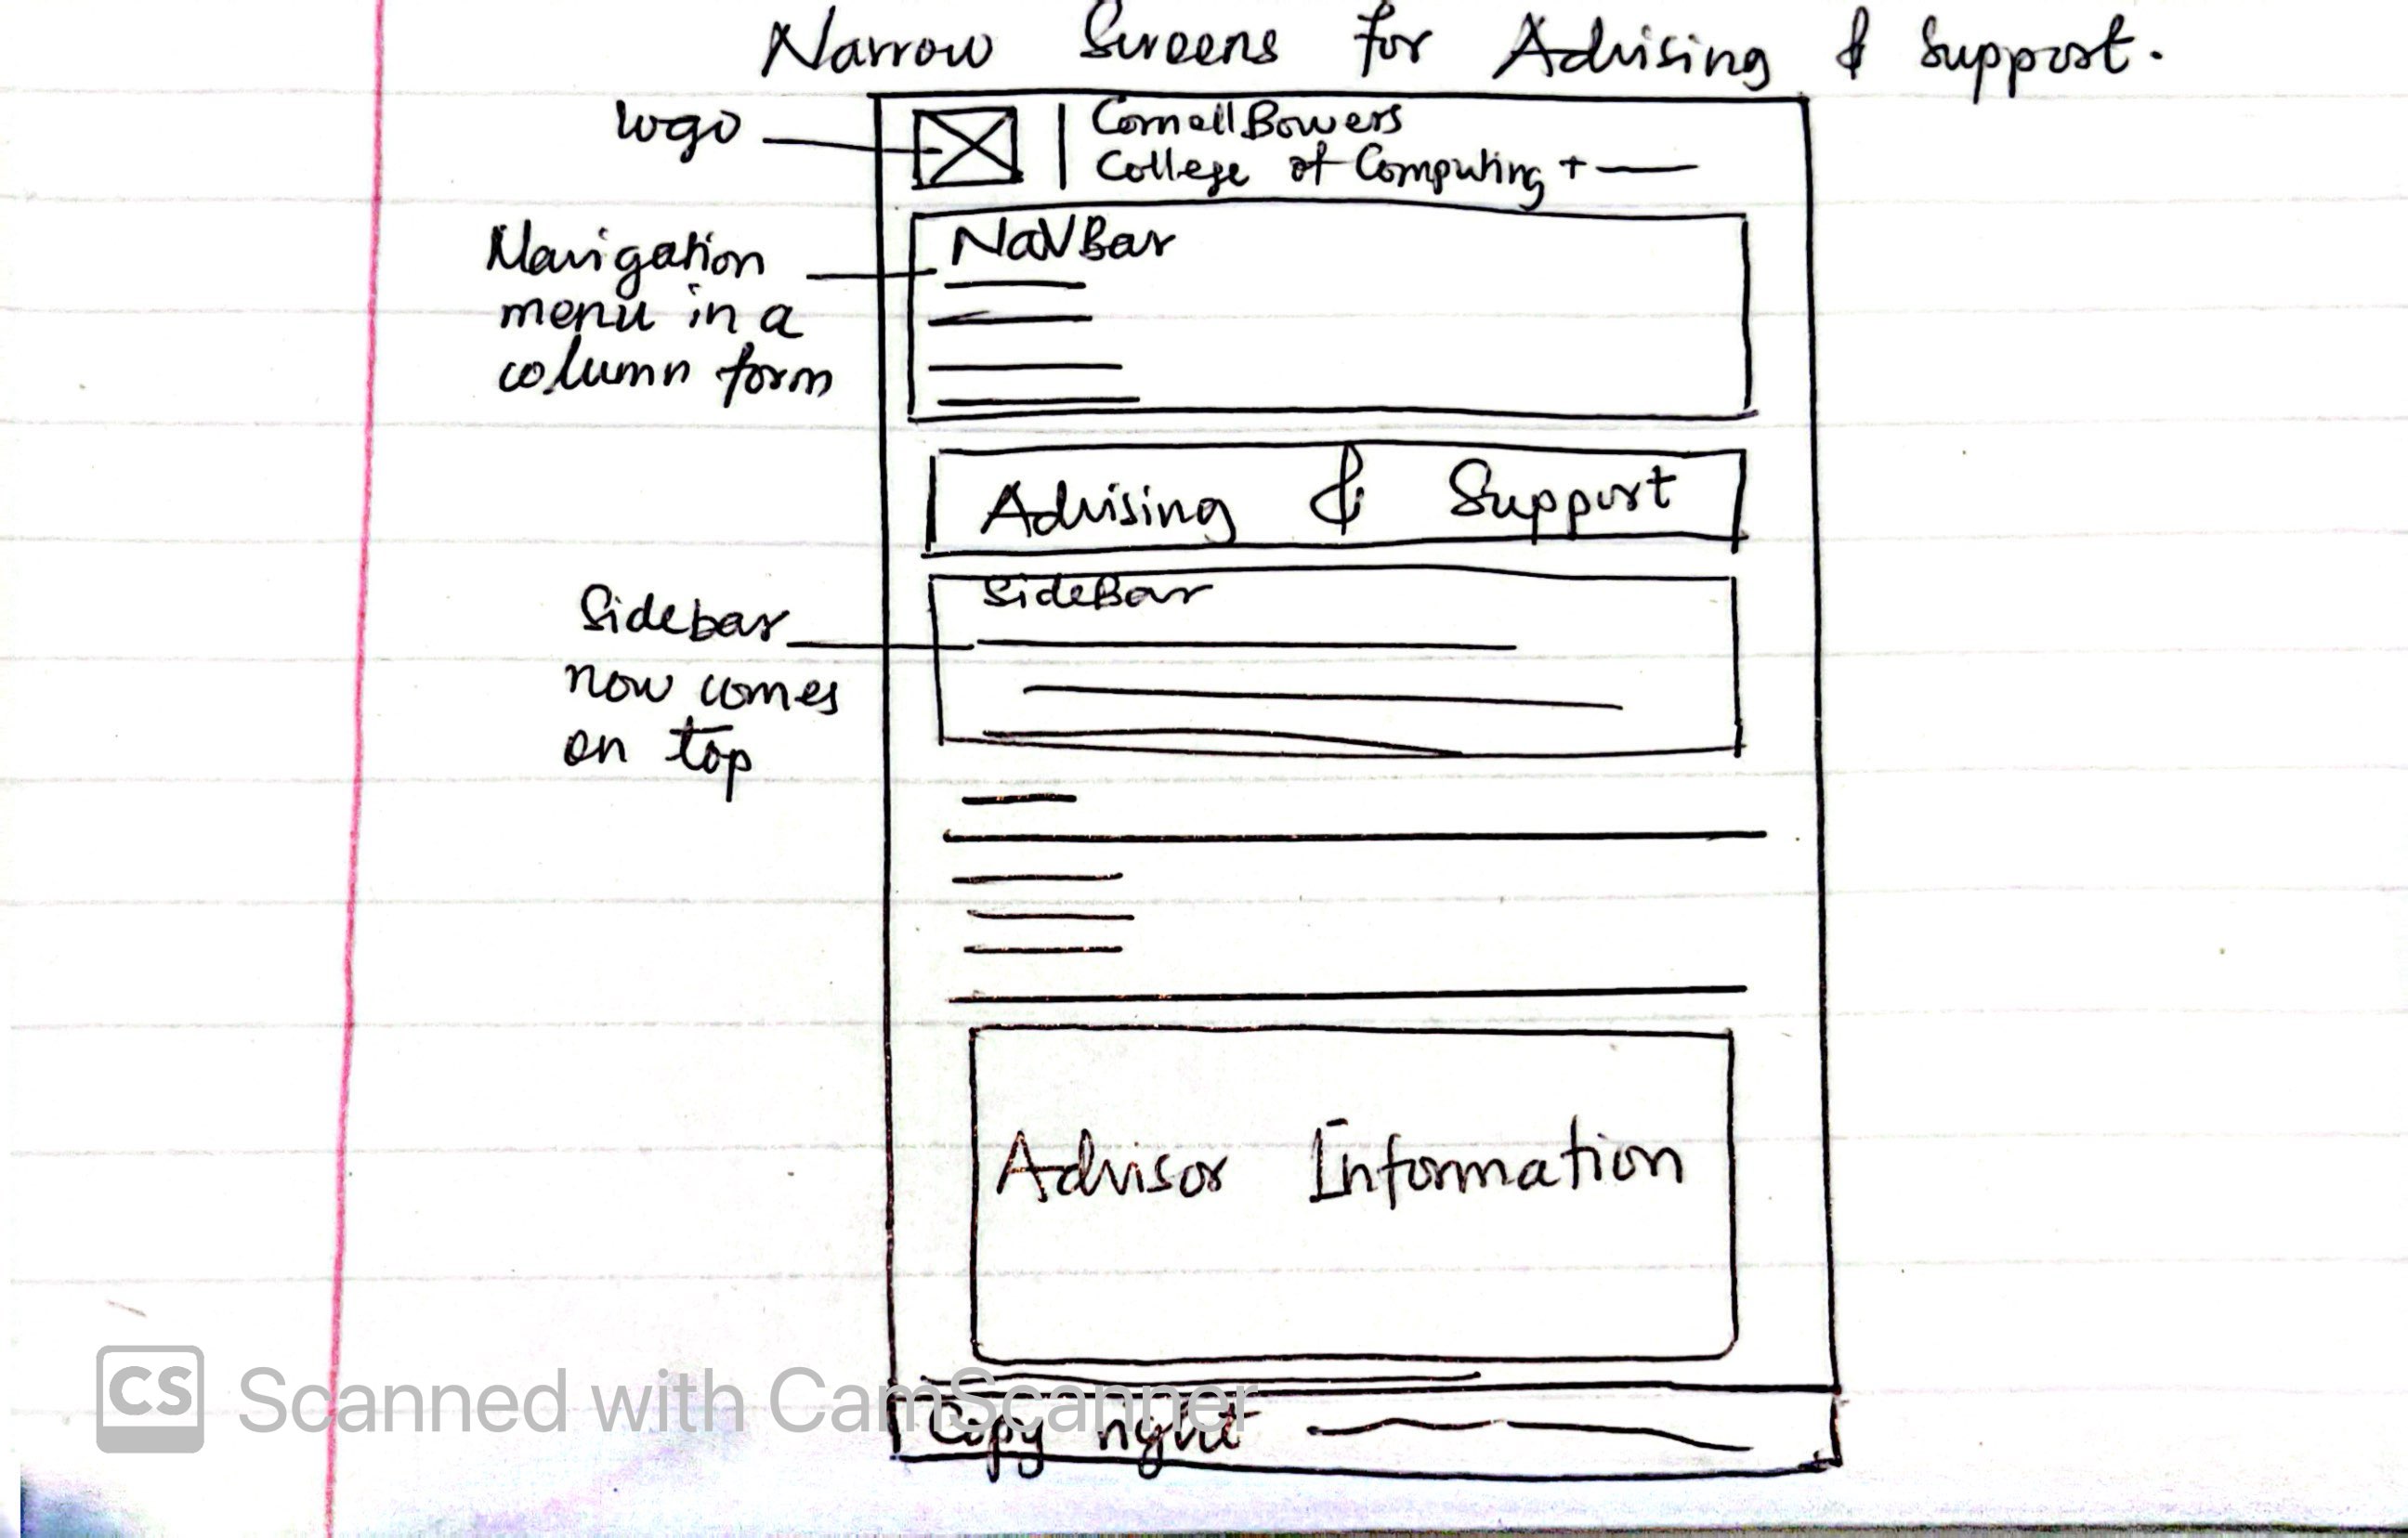 Narrow Screens for Advising & Support.
logo
Cornell Bowers
College of Computing +
Navigation
menu in a
column form
NavBar
Advising & Support
Sidebar
now comes
on top
SideBar
Advisor Information
Copy right
CS Scanned with CamScanner